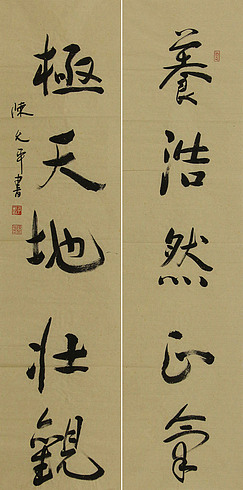 養浩然正氣
極天地壯觀
陳允平書